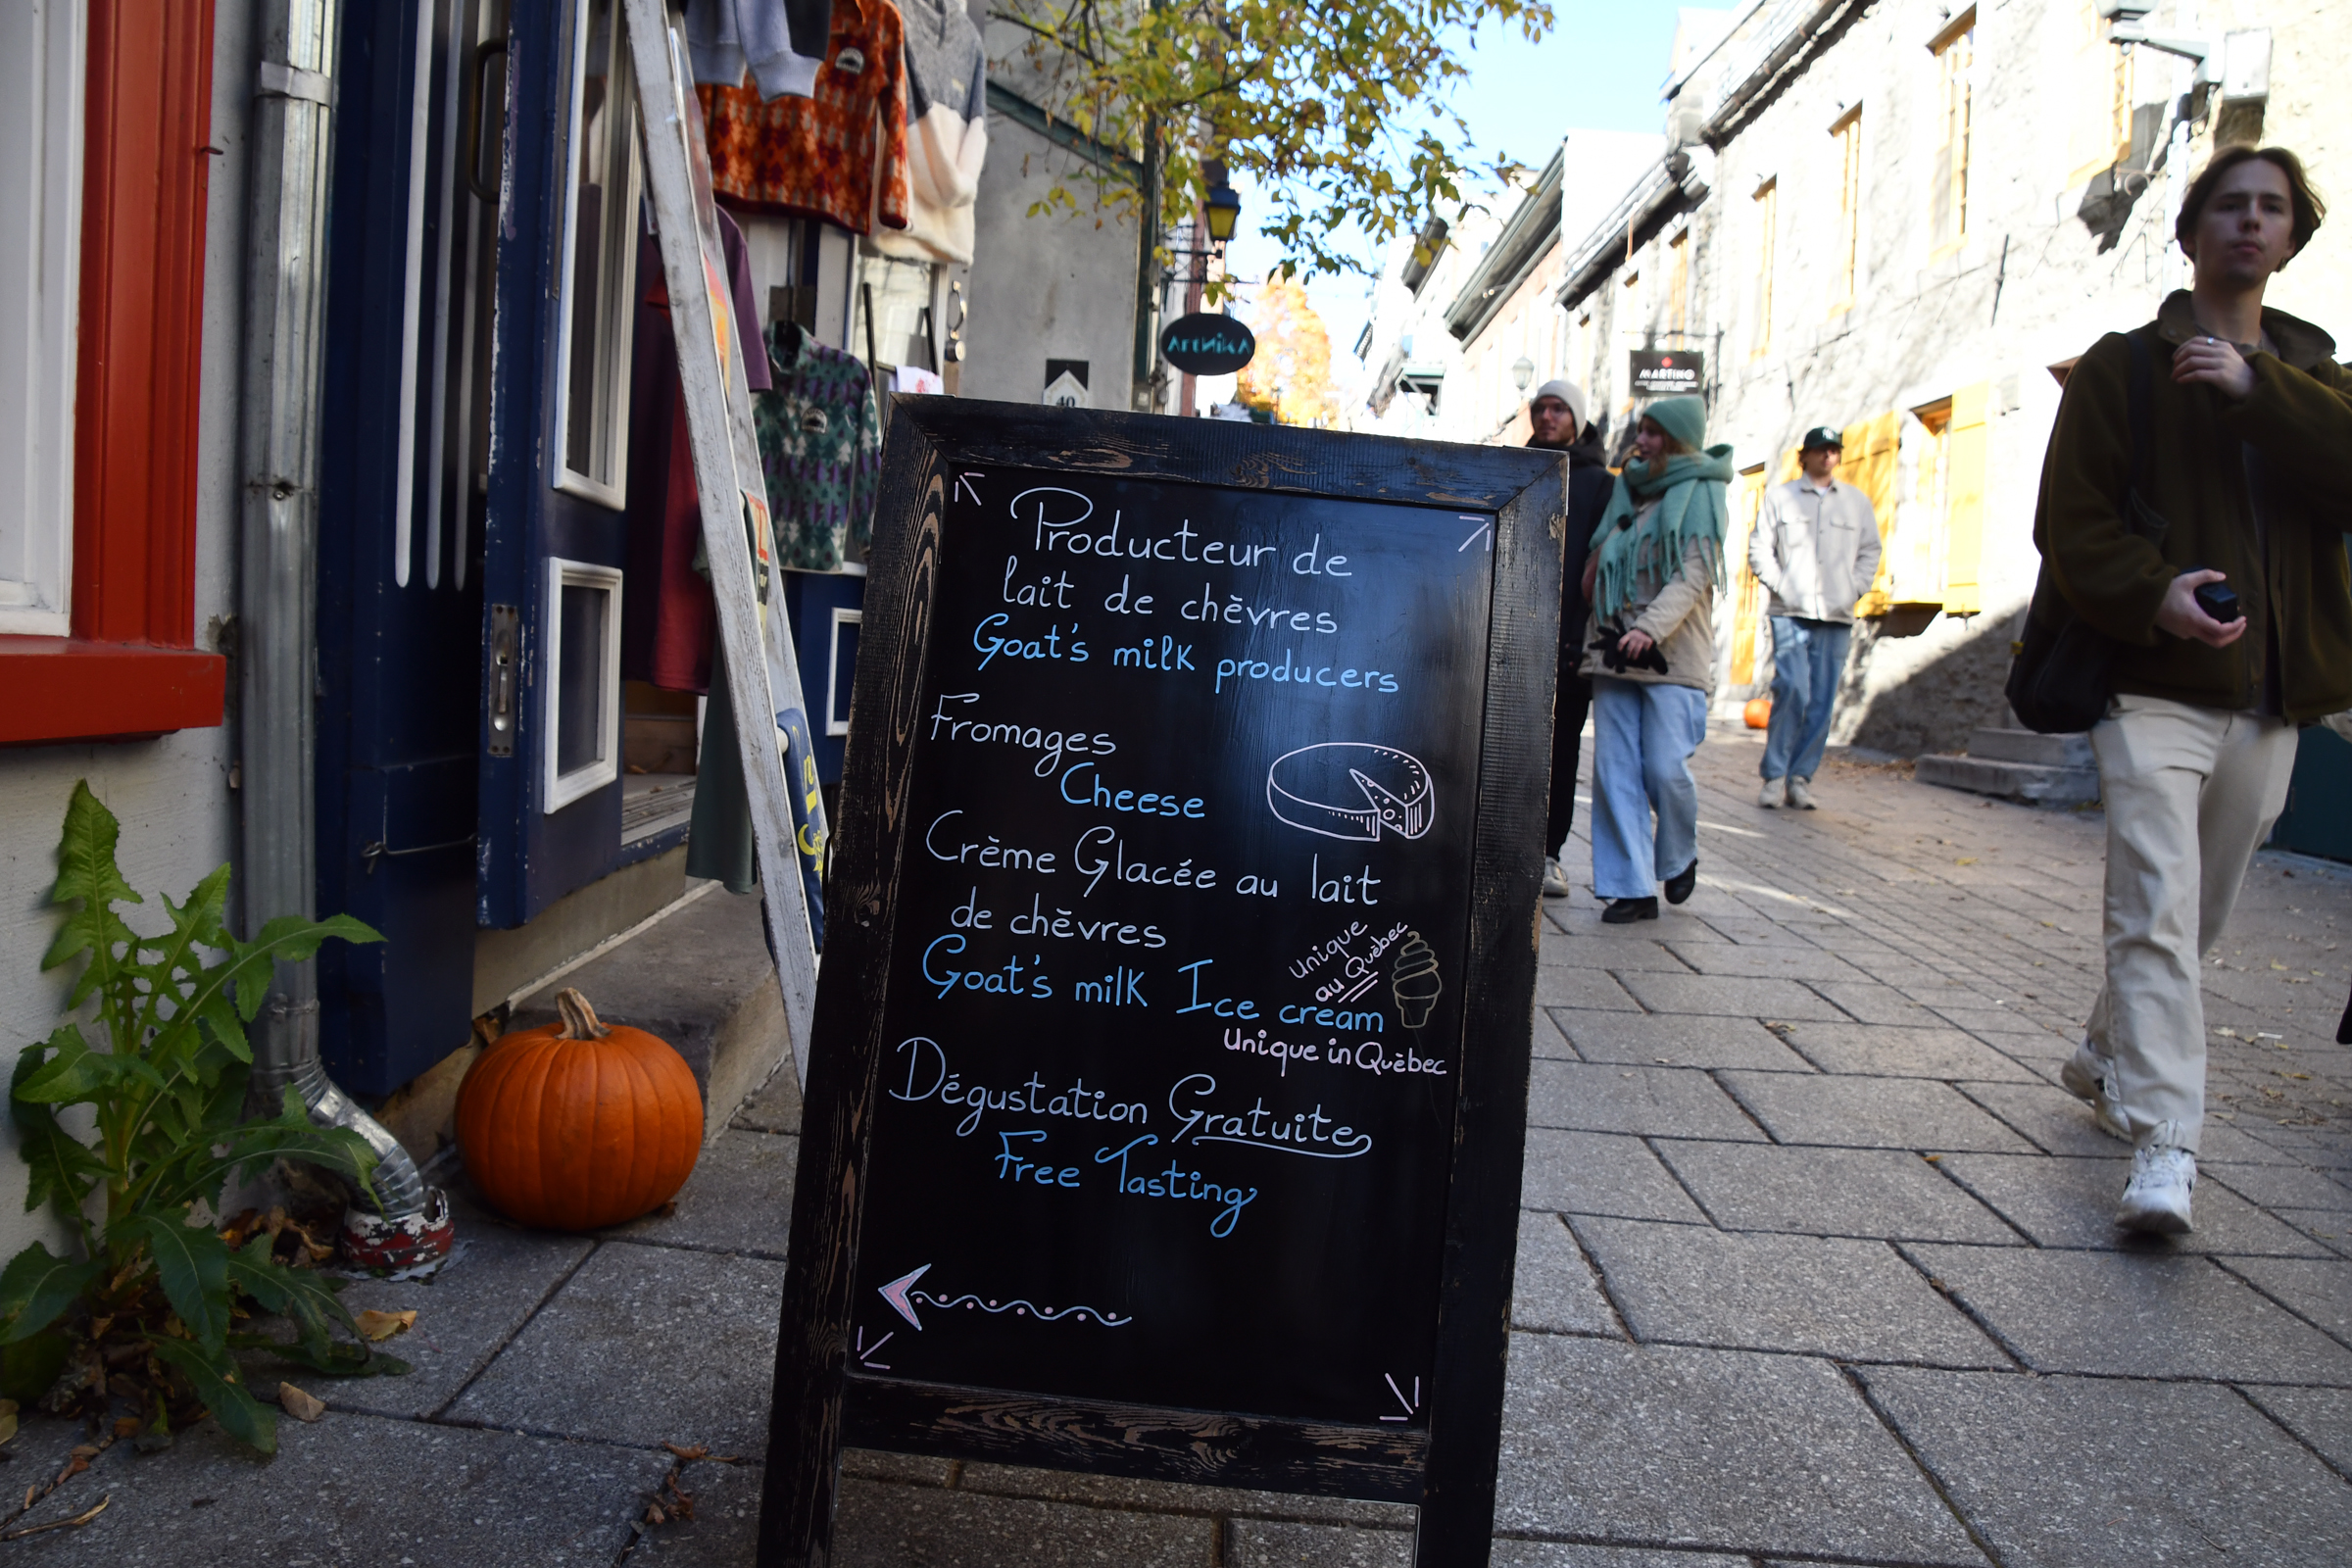 Producteur de
lait de chèvres
Goat's milk producers
Fromages
Cheese
Crème Glacée au lait
de chèvres
Unique
au Québec
Goat's milk Ice cream
Unique in Québec
Dégustation Gratuite
Free Tasting
ARTNIKA
40
MARTINO